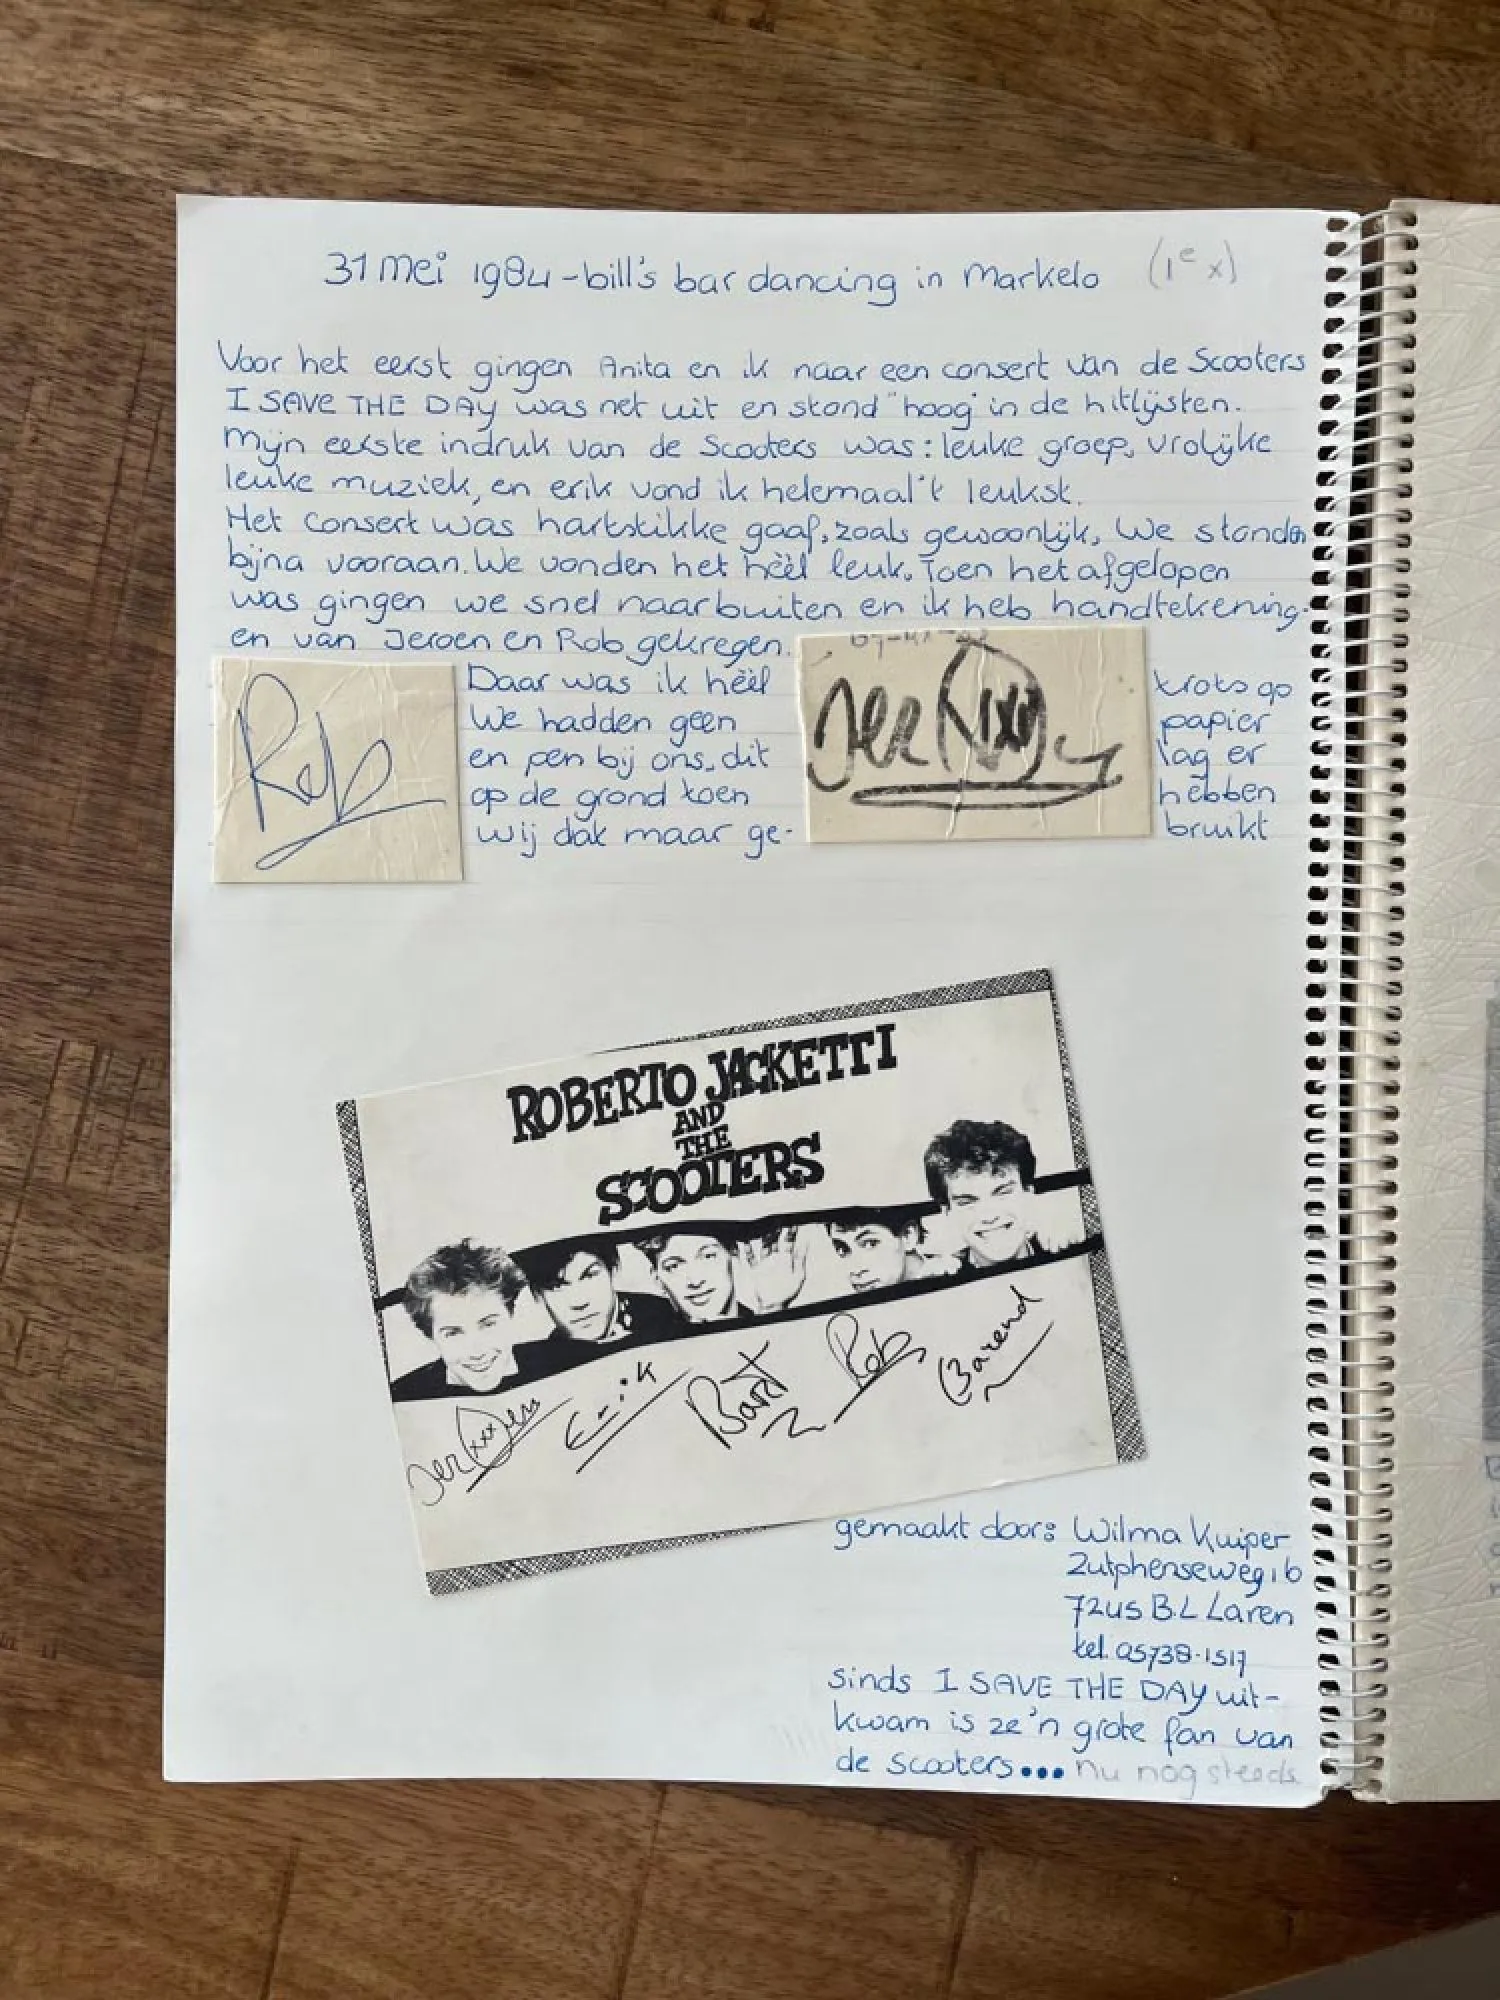 31 mei 1984 - bill's bar dancing in Markelo (1e x)
Voor het eerst gingen Anita en ik naar een consert van de Scooters
I SAVE THE DAY was net uit en stond "hoog" in de hitlijsten.
Mijn eerste indruk van de Scooters was: leuke groep, vrolijke
leuke muziek, en erik vond ik helemaal 't leukst.
Het consert was hartstikke gaaf, zoals gewoonlijk, We stonden
bijna vooraan. We vonden het hèèl leuk. Toen het afgelopen
was gingen we snel naar buiten en ik heb handtekening-
en van Jeroen en Rob gekregen.
Daar was ik hèèl trots op
We hadden geen papier
en pen bij ons, dit lag er
op de grond toen hebben
wij dat maar ge- bruikt
Rob
ROBERTO JACKETTI
AND
THE
SCOOTERS
Jer(xxx)een Erik Bart Rob Barend
gemaakt door: Wilma Kuiper
Zutphenseweg 1b
7245 B.L Laren
tel. 05738-1517
sinds I SAVE THE DAY uit-
kwam is ze 'n grote fan van
de scooters... nu nog steeds